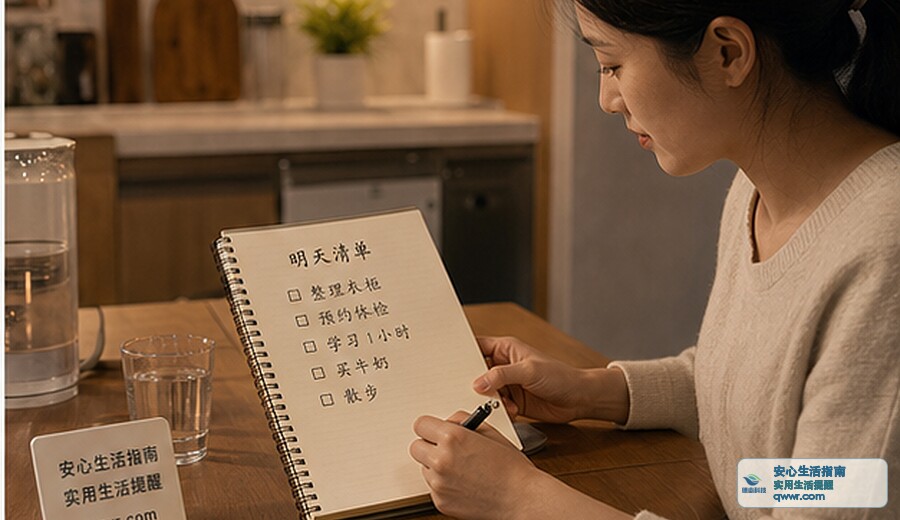 明天清单
整理衣柜
预约体检
学习1小时
买牛奶
散步
安心生活指南
实用生活提醒
.com
安心生活指南
实用生活提醒
qwwr.com